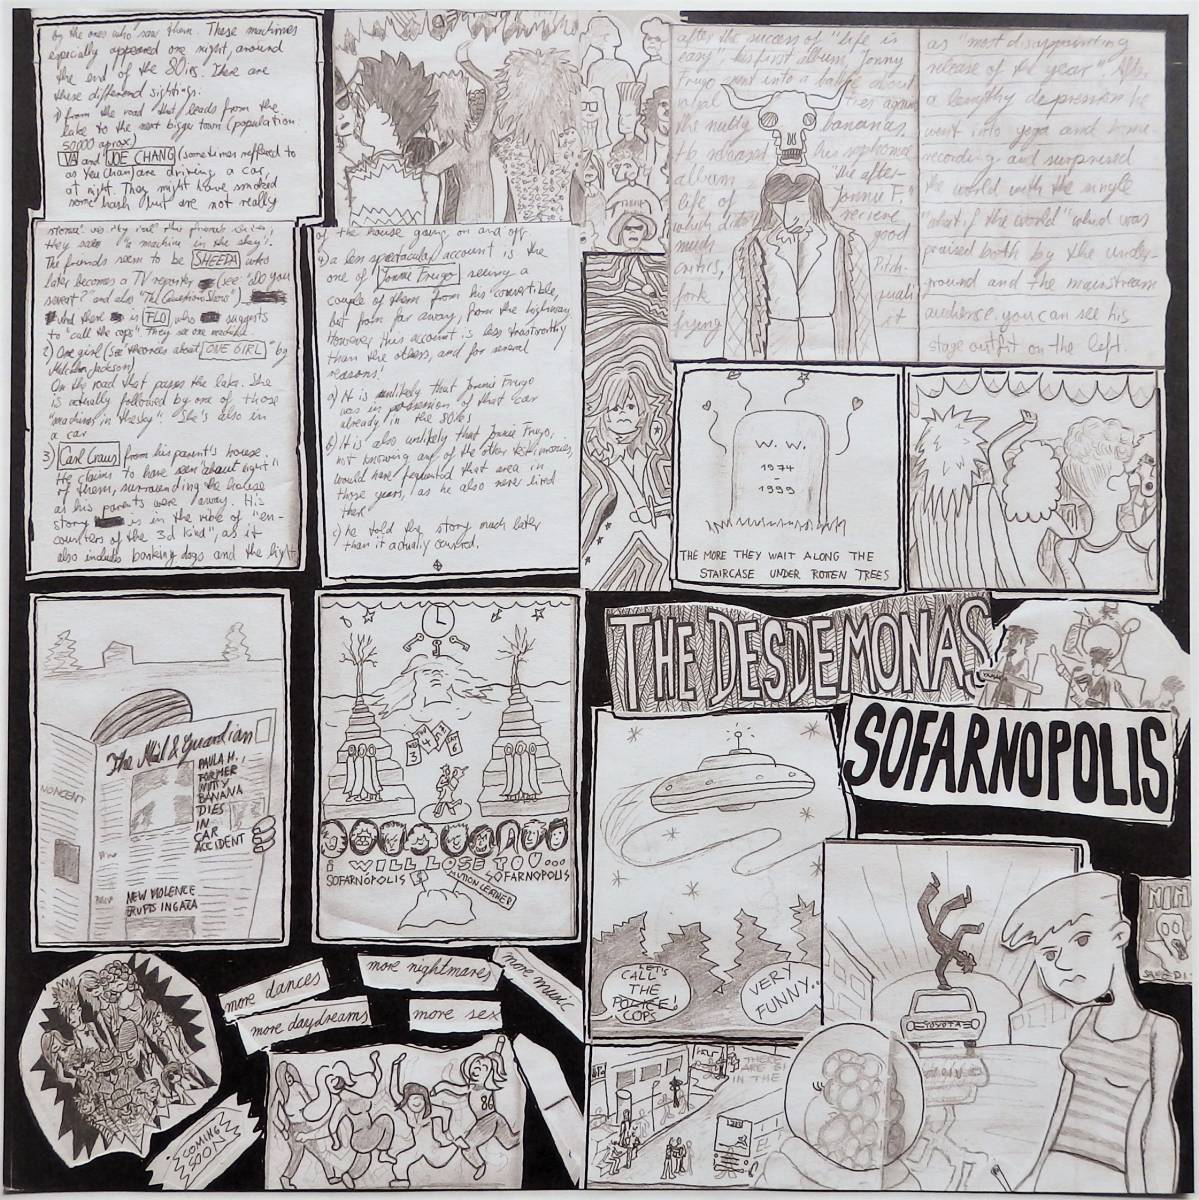 by the ones who saw them. These machines
especially appeared one night, around
the end of the 80ies. There are
these different sightings.
1) from the road that leads from the
lake to the next bigger town (population
50000 aprox)
VA and JOE CHANG (sometimes reffered to
as Yeu Chan) are driving a car,
at night. They might have smoked
some hash but are not really
stoned
they saw "a machine in the sky".
The friends seem to be SHEEPA who
later becomes a TV reporter (see "do you
sweat?" and also "The Question Show"),
And there is FLO who suggests
to "call the cops". They see one machine.
2) One girl (see theories about ONE GIRL" by
Malcolm Jackson)
On the road that passes the lake. She
is actually followed by one of those
"machines in the sky". She's also in
a car
3) Carl Craus from his parent's house.
He claims to have seen "about eight"
of them, surrounding the house
as his parents were away. His
story is in the vibe of "en-
counters of the 3d kind", as it
also includes barking dogs and the light
of the house going on and off.
4) a less spectacular account is the
one of Jonnie Frugo seeing a
couple of them from his convertible,
but from far away, from the highway
However this account is less trustworthy
than the others, and for several
reasons:
a) It is unlikely that Jonnie Frugo
was in possession of that car
already in the 80ies
b) It is also unlikely that Jonnie Frugo,
not knowing any of the other testimonies
would have frequented that area in
those years, as he also never lived
there
c) he told the story much later
than it actually occured.
after the success of "life is
easy", his first album, Jonny
Frugo went into a battle about
against
the nutty bananas.
He released his sophomore
album "the after-
life of Jonnie F."
which didn't recieve
much good
critics, Pitch-
fork
it
as "most disappointing
release of the year". After
a lengthy depression he
went into yoga and home-
recording and surprised
the world with the single
"what if the world" which was
praised both by the under-
ground and the mainstream
audience. you can see his
stage outfit on the left.
W. W.
1974
-
1999
THE MORE THEY WAIT ALONG THE
STAIRCASE UNDER ROTTEN TREES
THE DESDEMONAS
SOFARNOPOLIS
The Mail & Guardian
PAULA M.,
FORMER
NUTTY
BANANA
DIES
IN
CAR
ACCIDENT
NONCENT
NEW VIOLENCE
ERUPTS IN GAZA
I WILL LOSE YOU...
SOFARNOPOLIS
SOFARNOPOLIS
MOTION LEATHER
LET'S
CALL
THE
POLICE!
COPS
VERY
FUNNY..
TOYOTA
NIN
more dances
more nightmares
more music
more daydreams
more sex
COMING
SOON
86
THERE
ARE
IN THE